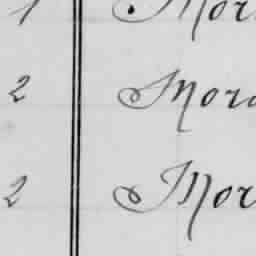 1 Mor
2 Mora
2 Mor